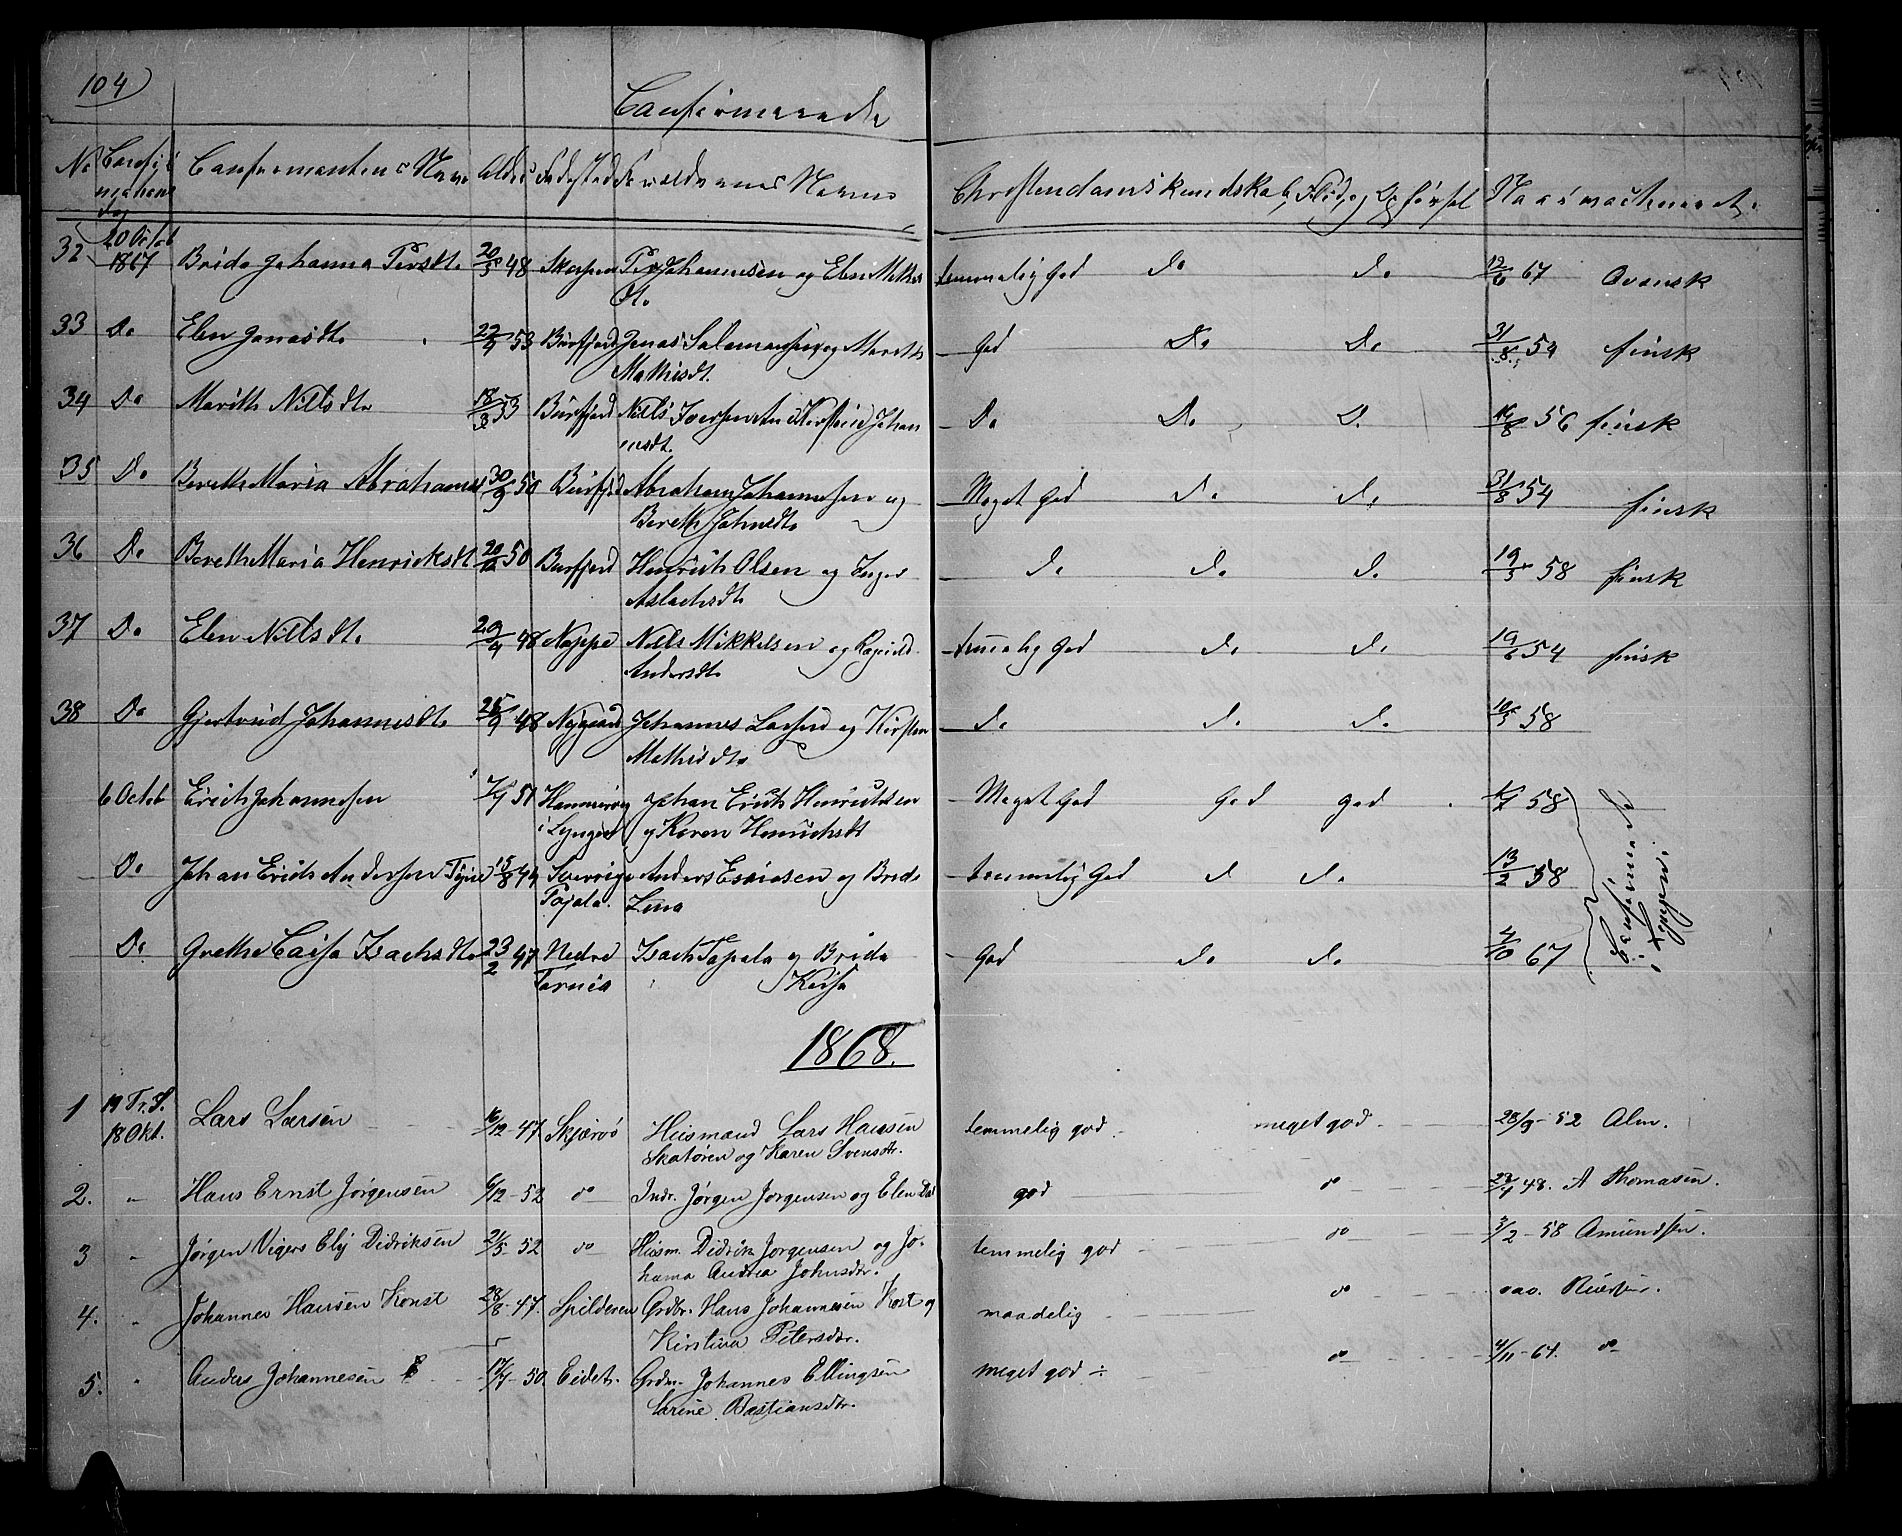 104
Confirmerede
No Confirmationsdag Confirmantens Navn Alder Fødested Forældrenes Navne Christendomskundskab, Flid og Opførsel Naar vaccineret.
32 20 Octob 1867 Brida Johanna Persdtr 20/3 48 Per Johannesen og Elen Mathisdtr. temmelig God Do Do 12/6 67 Qvænsk
33 Do Elen Jonasdtr 22/9 53 Burfjord Jonas Salamonsen og Marith Mathisdt. God Do Do 31/8 54 finsk
34 Do Marith Nilsdtr 18/3 53 Burfjord Nils Iversen Johannsdt. Do Do Do 56 finsk
35 Do Bereth Maria Abrahamsd 30/9 50 Burfjord Abraham Johannesen og Bereth Johnsdtr Meget God Do Do 31/8 54 finsk
36 Do Bereth Maria Henricksdt. 50 Burfjord Henrich Olsen og Inger Aslachsdtr Do Do Do 19/5 58 finsk
37 Do Elen Nilsdtr 48 Nils Mikkelsen og Ragnild Andersdtr temmelig God Do Do 19/6 54 finsk
38 Do Gjertrud Johannesdtr 25/9 48 Johannes Larsen og Kirsten Mathisdtr Do Do Do 58
6 Octob Erich Johannesen 51 i Lyngen Johan Erich Henrichsen og Karen Henrichsdt Meget God God god 58
Do Johan Erich Andersen 15/8 44 Sverrige Anders Esaiasen og Brida Lena temmelig God Do Do 13/2 58
Do Grethe Caisa Isachsdtr 23/2 47 Nedre Tornea Isach Tapala og Brida Kaisa God Do Do 4/10 67
Confirmerede i Lyngen.
1868.
1 19 Tr. S. 18 Okt. Lars Larsen 16/12-47. Skjærvö Huusmand Lars Hansen Skatören og Karen Svensdtr. temmelig god meget god 28/9-52 Alm.
2. " Hans Ernst Jørgensen 6/12-52 do Indr. Jørgen Jørgensen og Elen god do 48. A Thomasen.
3 " Jørgen Vigers Didriksen 21/5-52 do Huusm. Didrik Jørgensen og Johanna Andrea Johnsdtr. temmelig god do 3/2-58 Amundsen.
4. " Johannes Hansen Konst 28/8-47. Spilderen Grdbr. Hans Johannesen Kost og Kirstina Petersdtr. maadelig do
5. " Anders Johannesen 17/7-50 Eidet. Grdm. Johannes Ellingsen Sarine Bastiansdtr. meget god ÷ do 4/11-64. do